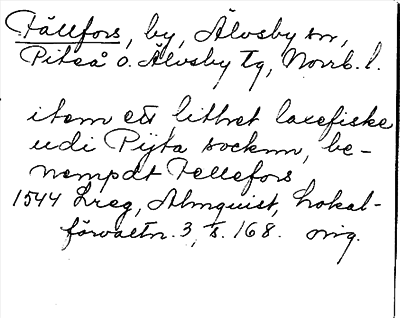 Fällfors, by, Älvsby sn,
Piteå o. Älvsby tg, Norrb. l.
item ett lithet laxefiske
udi Pijta socknn, be-
nempdt Fellefors
1544 Lreg, Almquist, Lokal-
förvaltn. 3, s. 168. orig.